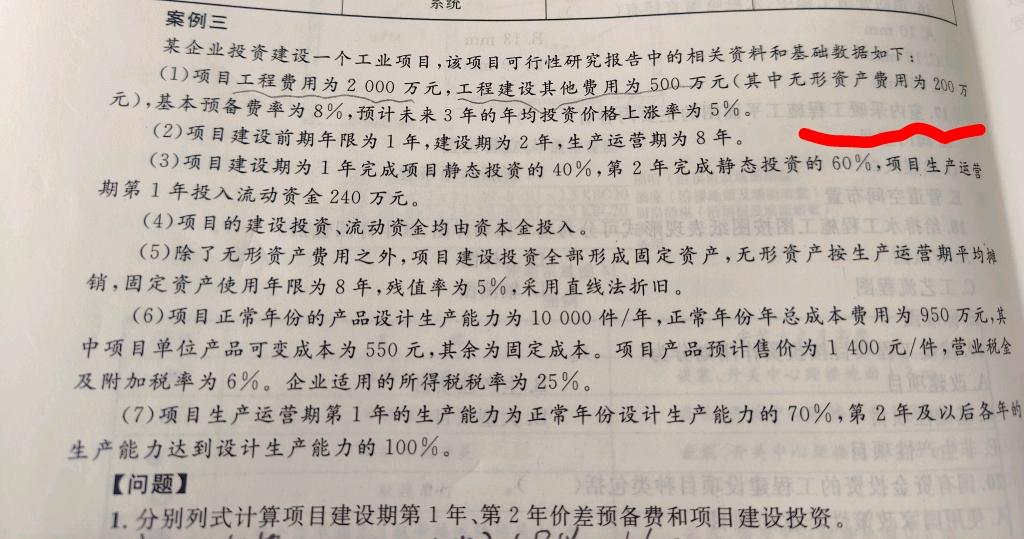 系统
案例三
某企业投资建设一个工业项目,该项目可行性研究报告中的相关资料和基础数据如下:
(1)项目工程费用为 2 000 万元,工程建设其他费用为 500 万元(其中无形资产费用为 200 万
元),基本预备费率为 8%,预计未来 3 年的年均投资价格上涨率为 5%。
(2)项目建设前期年限为 1 年,建设期为 2 年,生产运营期为 8 年。
(3)项目建设期为 1 年完成项目静态投资的 40%,第 2 年完成静态投资的 60%,项目生产运营
期第 1 年投入流动资金 240 万元。
(4)项目的建设投资、流动资金均由资本金投入。
(5)除了无形资产费用之外,项目建设投资全部形成固定资产,无形资产按生产运营期平均摊
销,固定资产使用年限为 8 年,残值率为 5%,采用直线法折旧。
(6)项目正常年份的产品设计生产能力为 10 000 件/年,正常年份年总成本费用为 950 万元,其
中项目单位产品可变成本为 550 元,其余为固定成本。项目产品预计售价为 1 400 元/件,营业税金
及附加税率为 6%。企业适用的所得税税率为 25%。
(7)项目生产运营期第 1 年的生产能力为正常年份设计生产能力的 70%,第 2 年及以后各年的
生产能力达到设计生产能力的 100%。
【问题】
1. 分别列式计算项目建设期第 1 年、第 2 年价差预备费和项目建设投资。